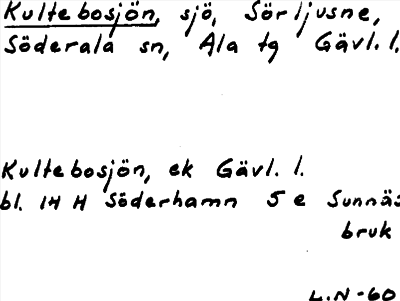 Kultebosjön, sjö, Sörljusne,
Söderala sn, Ala tg Gävl. l.
Kultebosjön, ek Gävl. l.
bl. 14 H Söderhamn 5 e Sunnäs
bruk
L.N-60